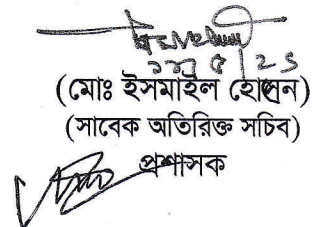 (মোঃ ইসমাইল হোসেন)
(সাবেক অতিরিক্ত সচিব)
প্রশাসক